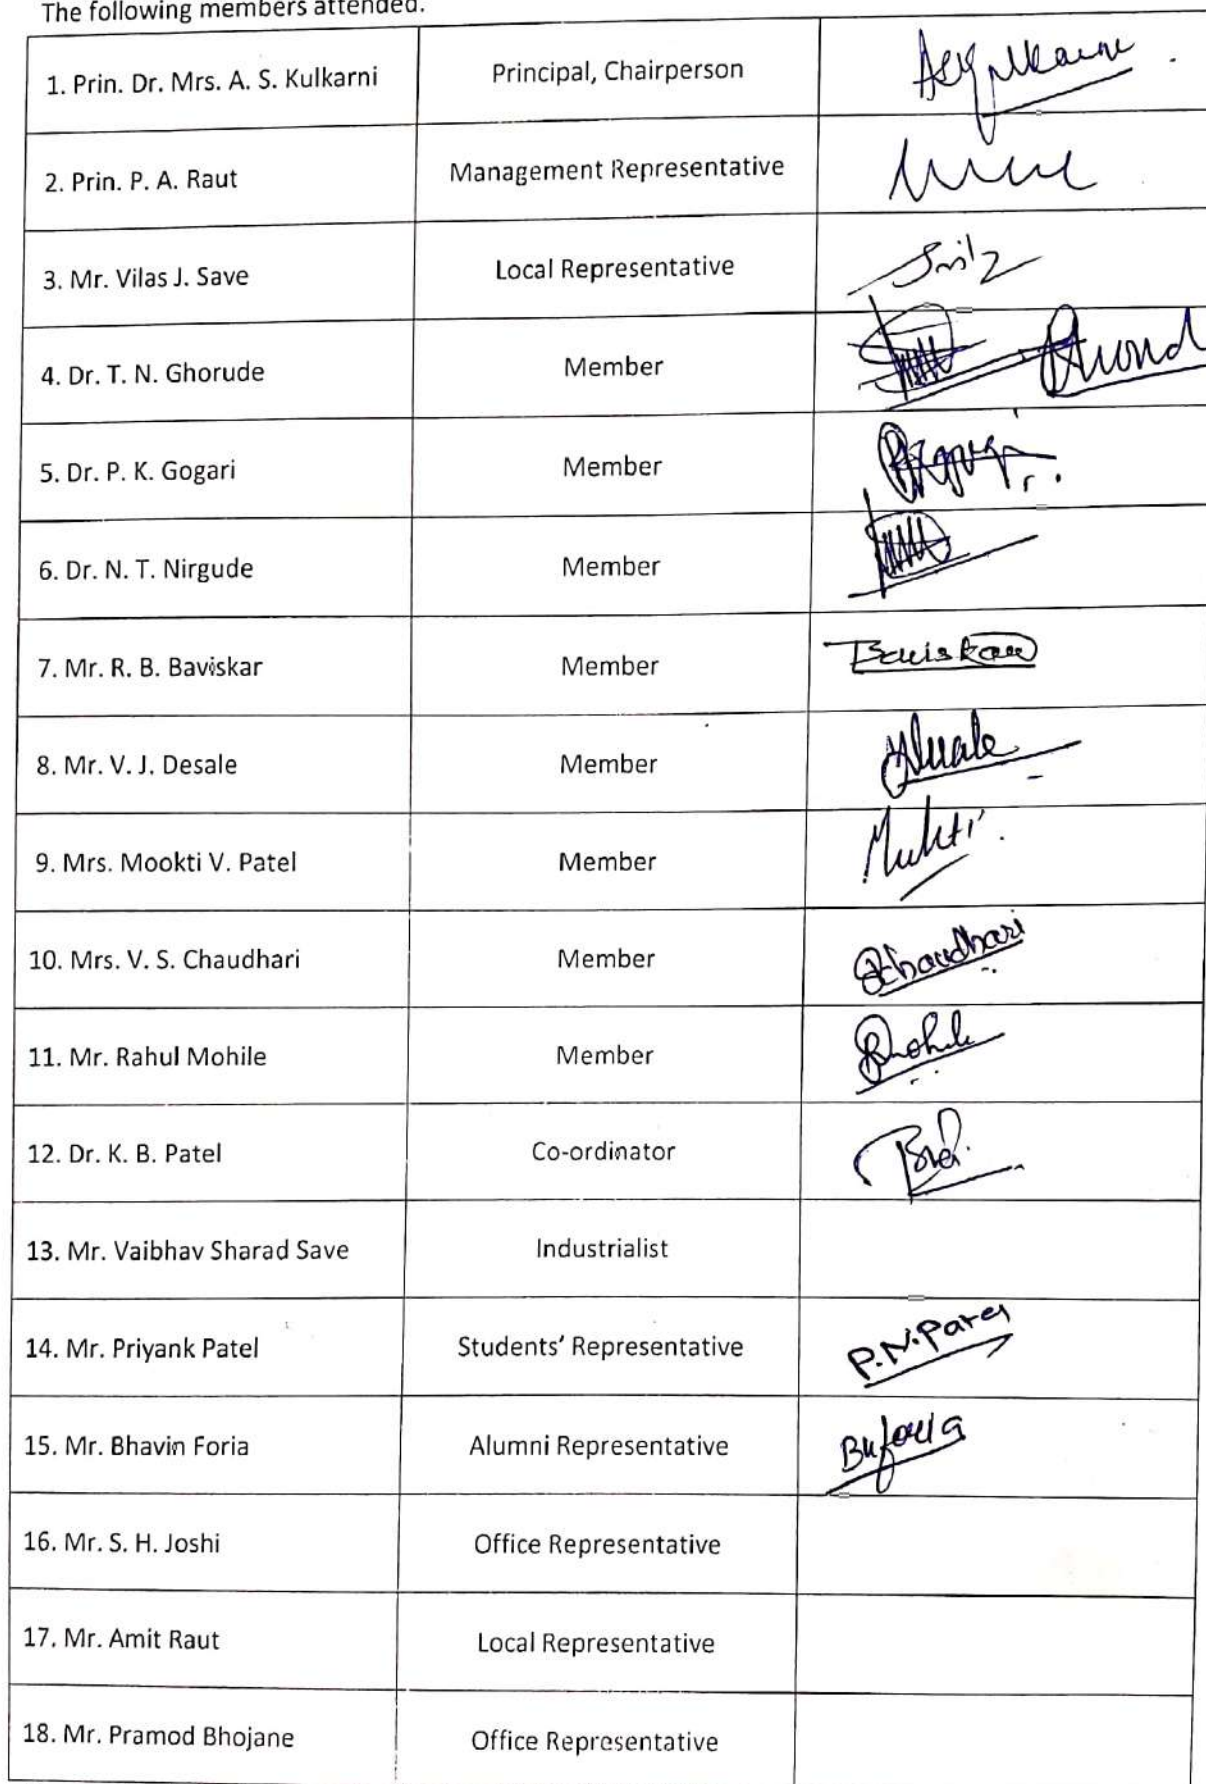 The following members attended.
1. Prin. Dr. Mrs. A. S. Kulkarni Principal, Chairperson
2. Prin. P. A. Raut Management Representative
3. Mr. Vilas J. Save Local Representative
4. Dr. T. N. Ghorude Member
5. Dr. P. K. Gogari Member
6. Dr. N. T. Nirgude Member
7. Mr. R. B. Baviskar Member Baviskar
8. Mr. V. J. Desale Member
9. Mrs. Mookti V. Patel Member Mukti
10. Mrs. V. S. Chaudhari Member Chaudhari
11. Mr. Rahul Mohile Member
12. Dr. K. B. Patel Co-ordinator
13. Mr. Vaibhav Sharad Save Industrialist
14. Mr. Priyank Patel Students' Representative P.N.Patel
15. Mr. Bhavin Foria Alumni Representative
16. Mr. S. H. Joshi Office Representative
17. Mr. Amit Raut Local Representative
18. Mr. Pramod Bhojane Office Representative